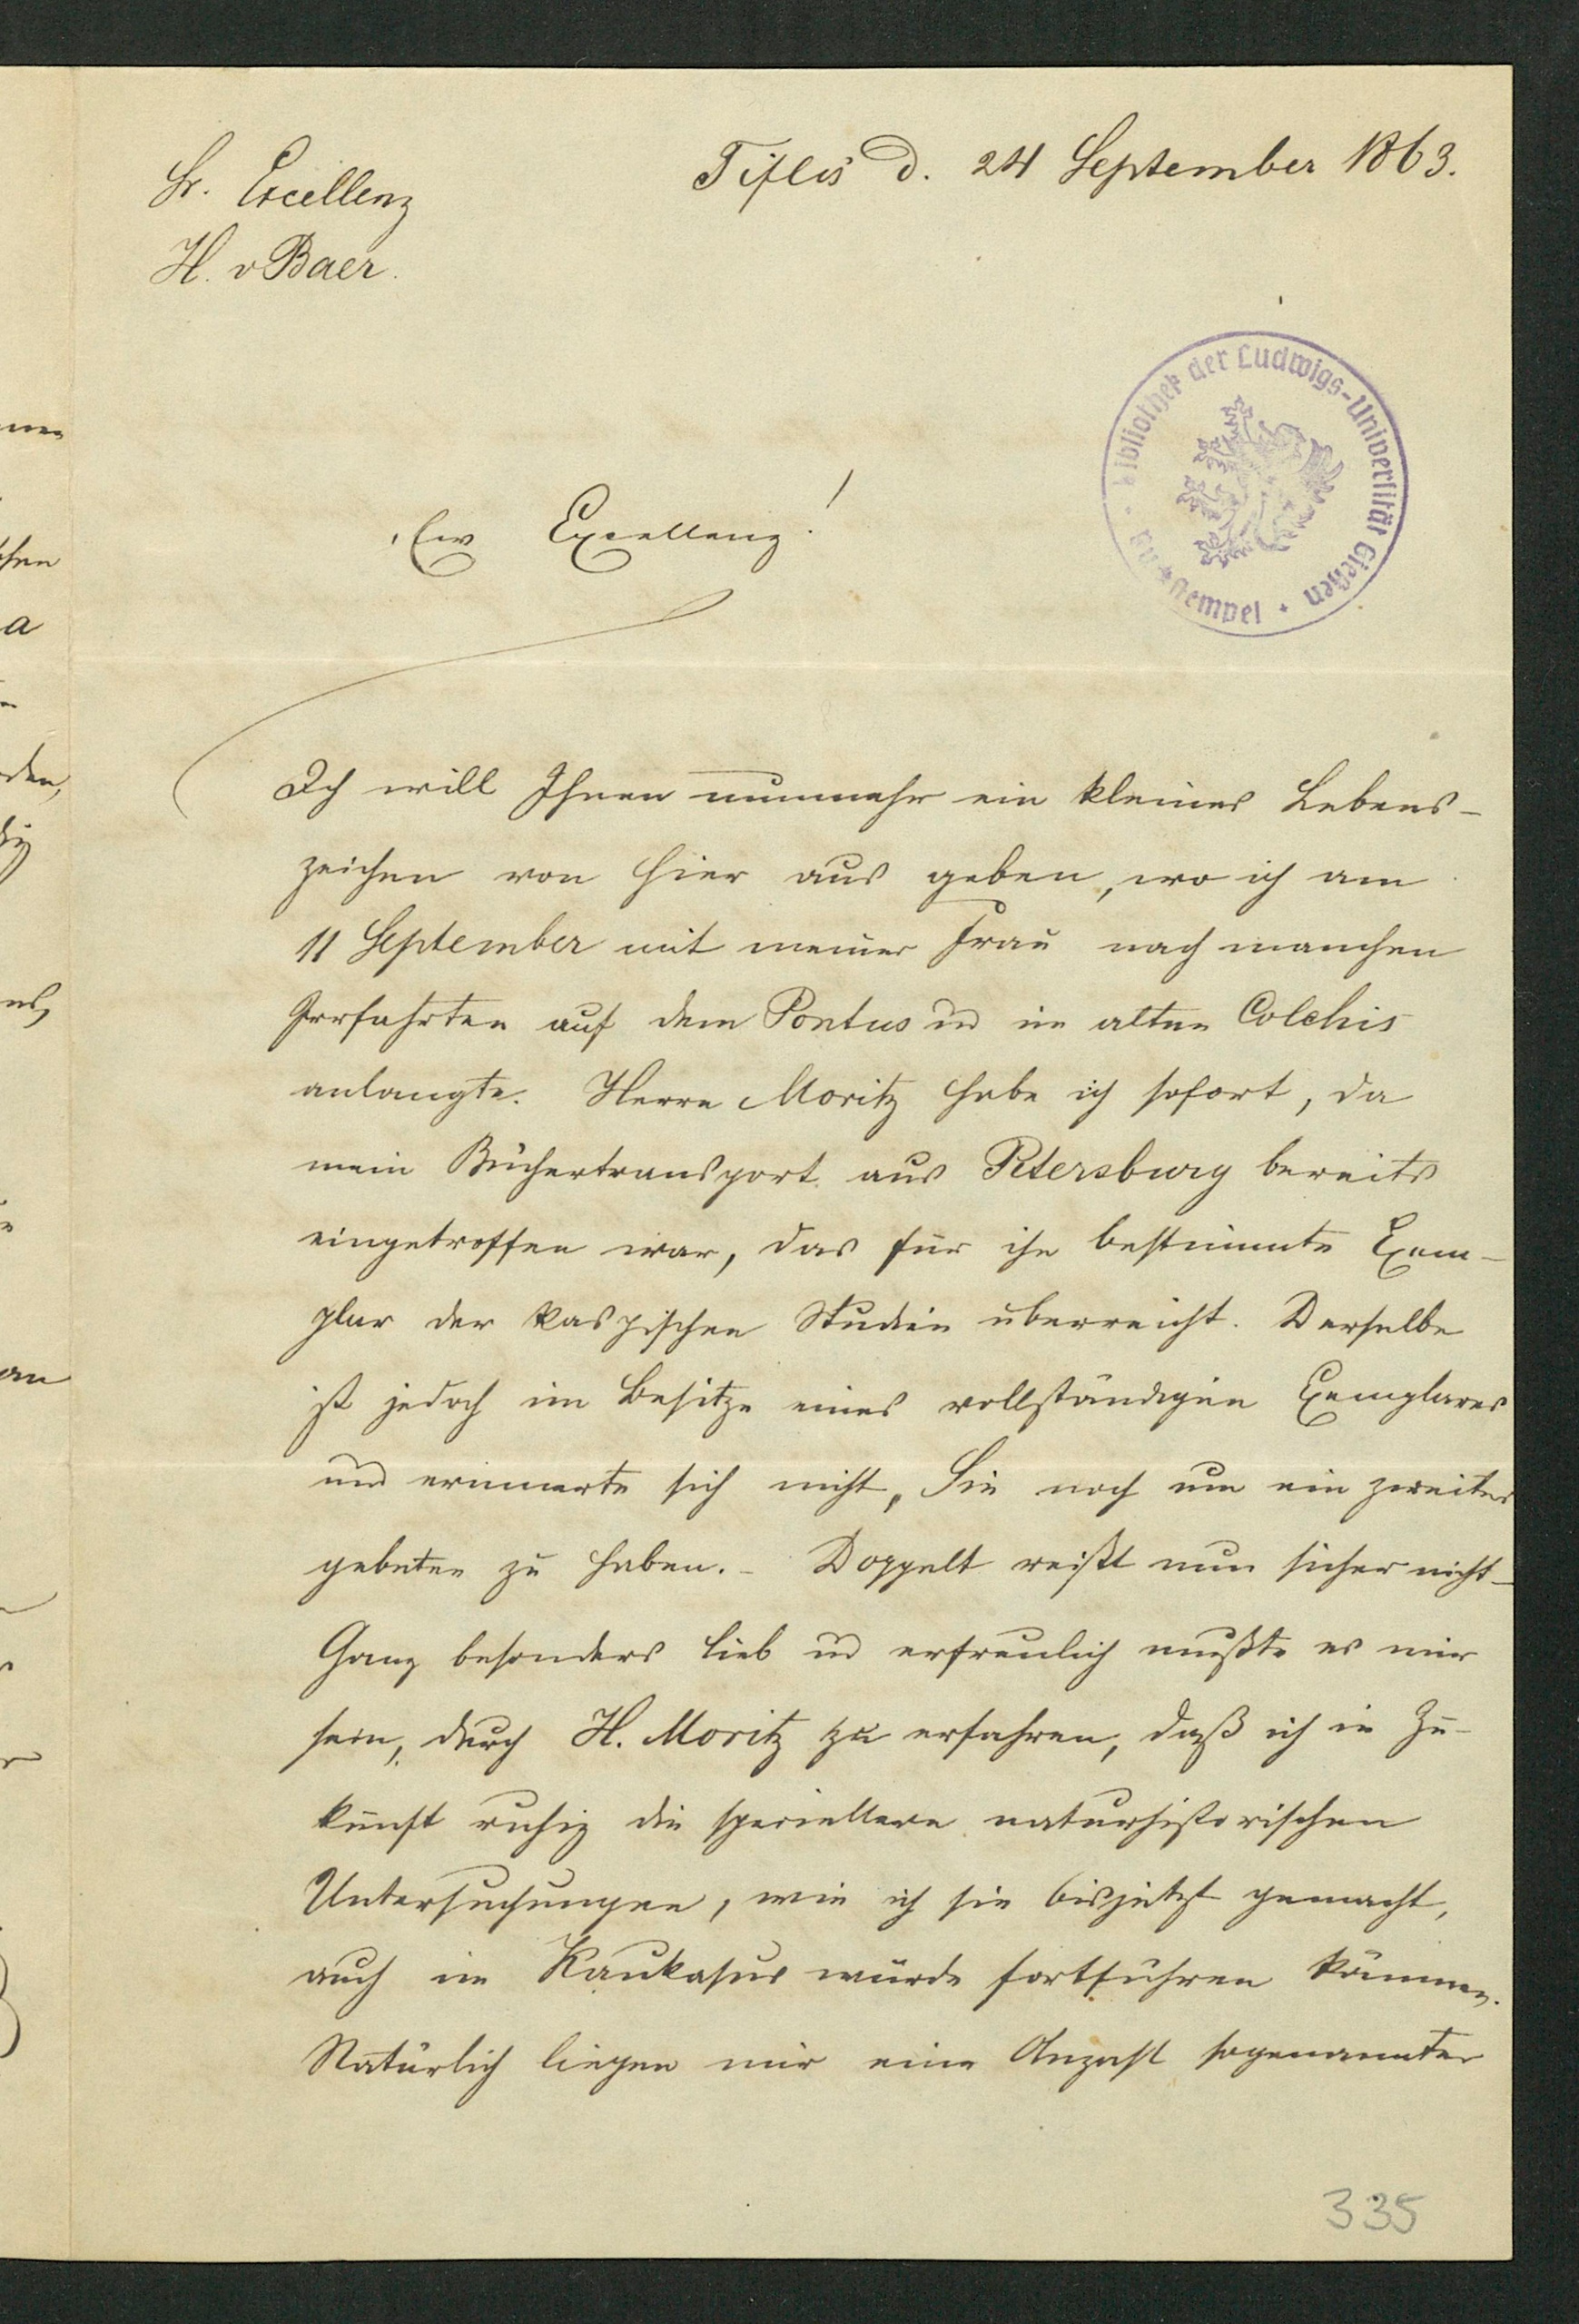 Tiflis d. 24 September 1863.
Sr. Excellenz
H. v Baer.
Bibliothek der Ludwigs-Universität Gießen
Ew Excellenz!
Ich will Ihnen nunmehr ein kleines Lebens-
zeichen von hier aus geben, wo ich am
11 September mit meiner Frau nach manchen
Irrfahrten auf dem Pontus u im alten Colchis
anlangte. Herrn Moritz habe ich sofort, da
mein Büchertransport aus Petersburg bereits
eingetroffen war, das für ihn bestimmte Exem-
plar der kaspischen Studien überreicht. Derselbe
ist jedoch im Besitze eines vollständigen Exemplares
und erinnerte sich nicht, Sie noch um ein zweites
gebeten zu haben. - Doppelt reißt nun sicher nicht -
Ganz besonders lieb u erfreulich mußte es mir
sein, durch H. Moritz zu erfahren, daß ich in Zu-
kunft ruhig die speciellere naturhistorischen
Untersuchungen, wie ich sie bisjetzt gemacht,
auch im Kaukasus würde fortführen können.
Natürlich liegen mir eine Anzahl sogenannter
335